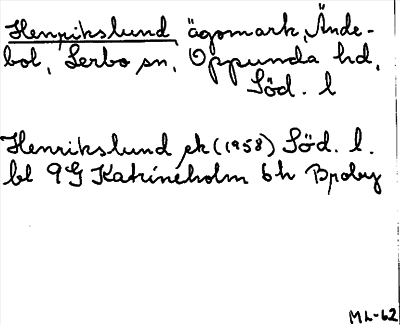 Henrikslund, ägomark, Ände-
bol, Lerbo sn, Oppunda hd,
Söd. l
Henrikslund ek (1958) Söd. l.
bl 9G Katrineholm 6h Broby
ML-62